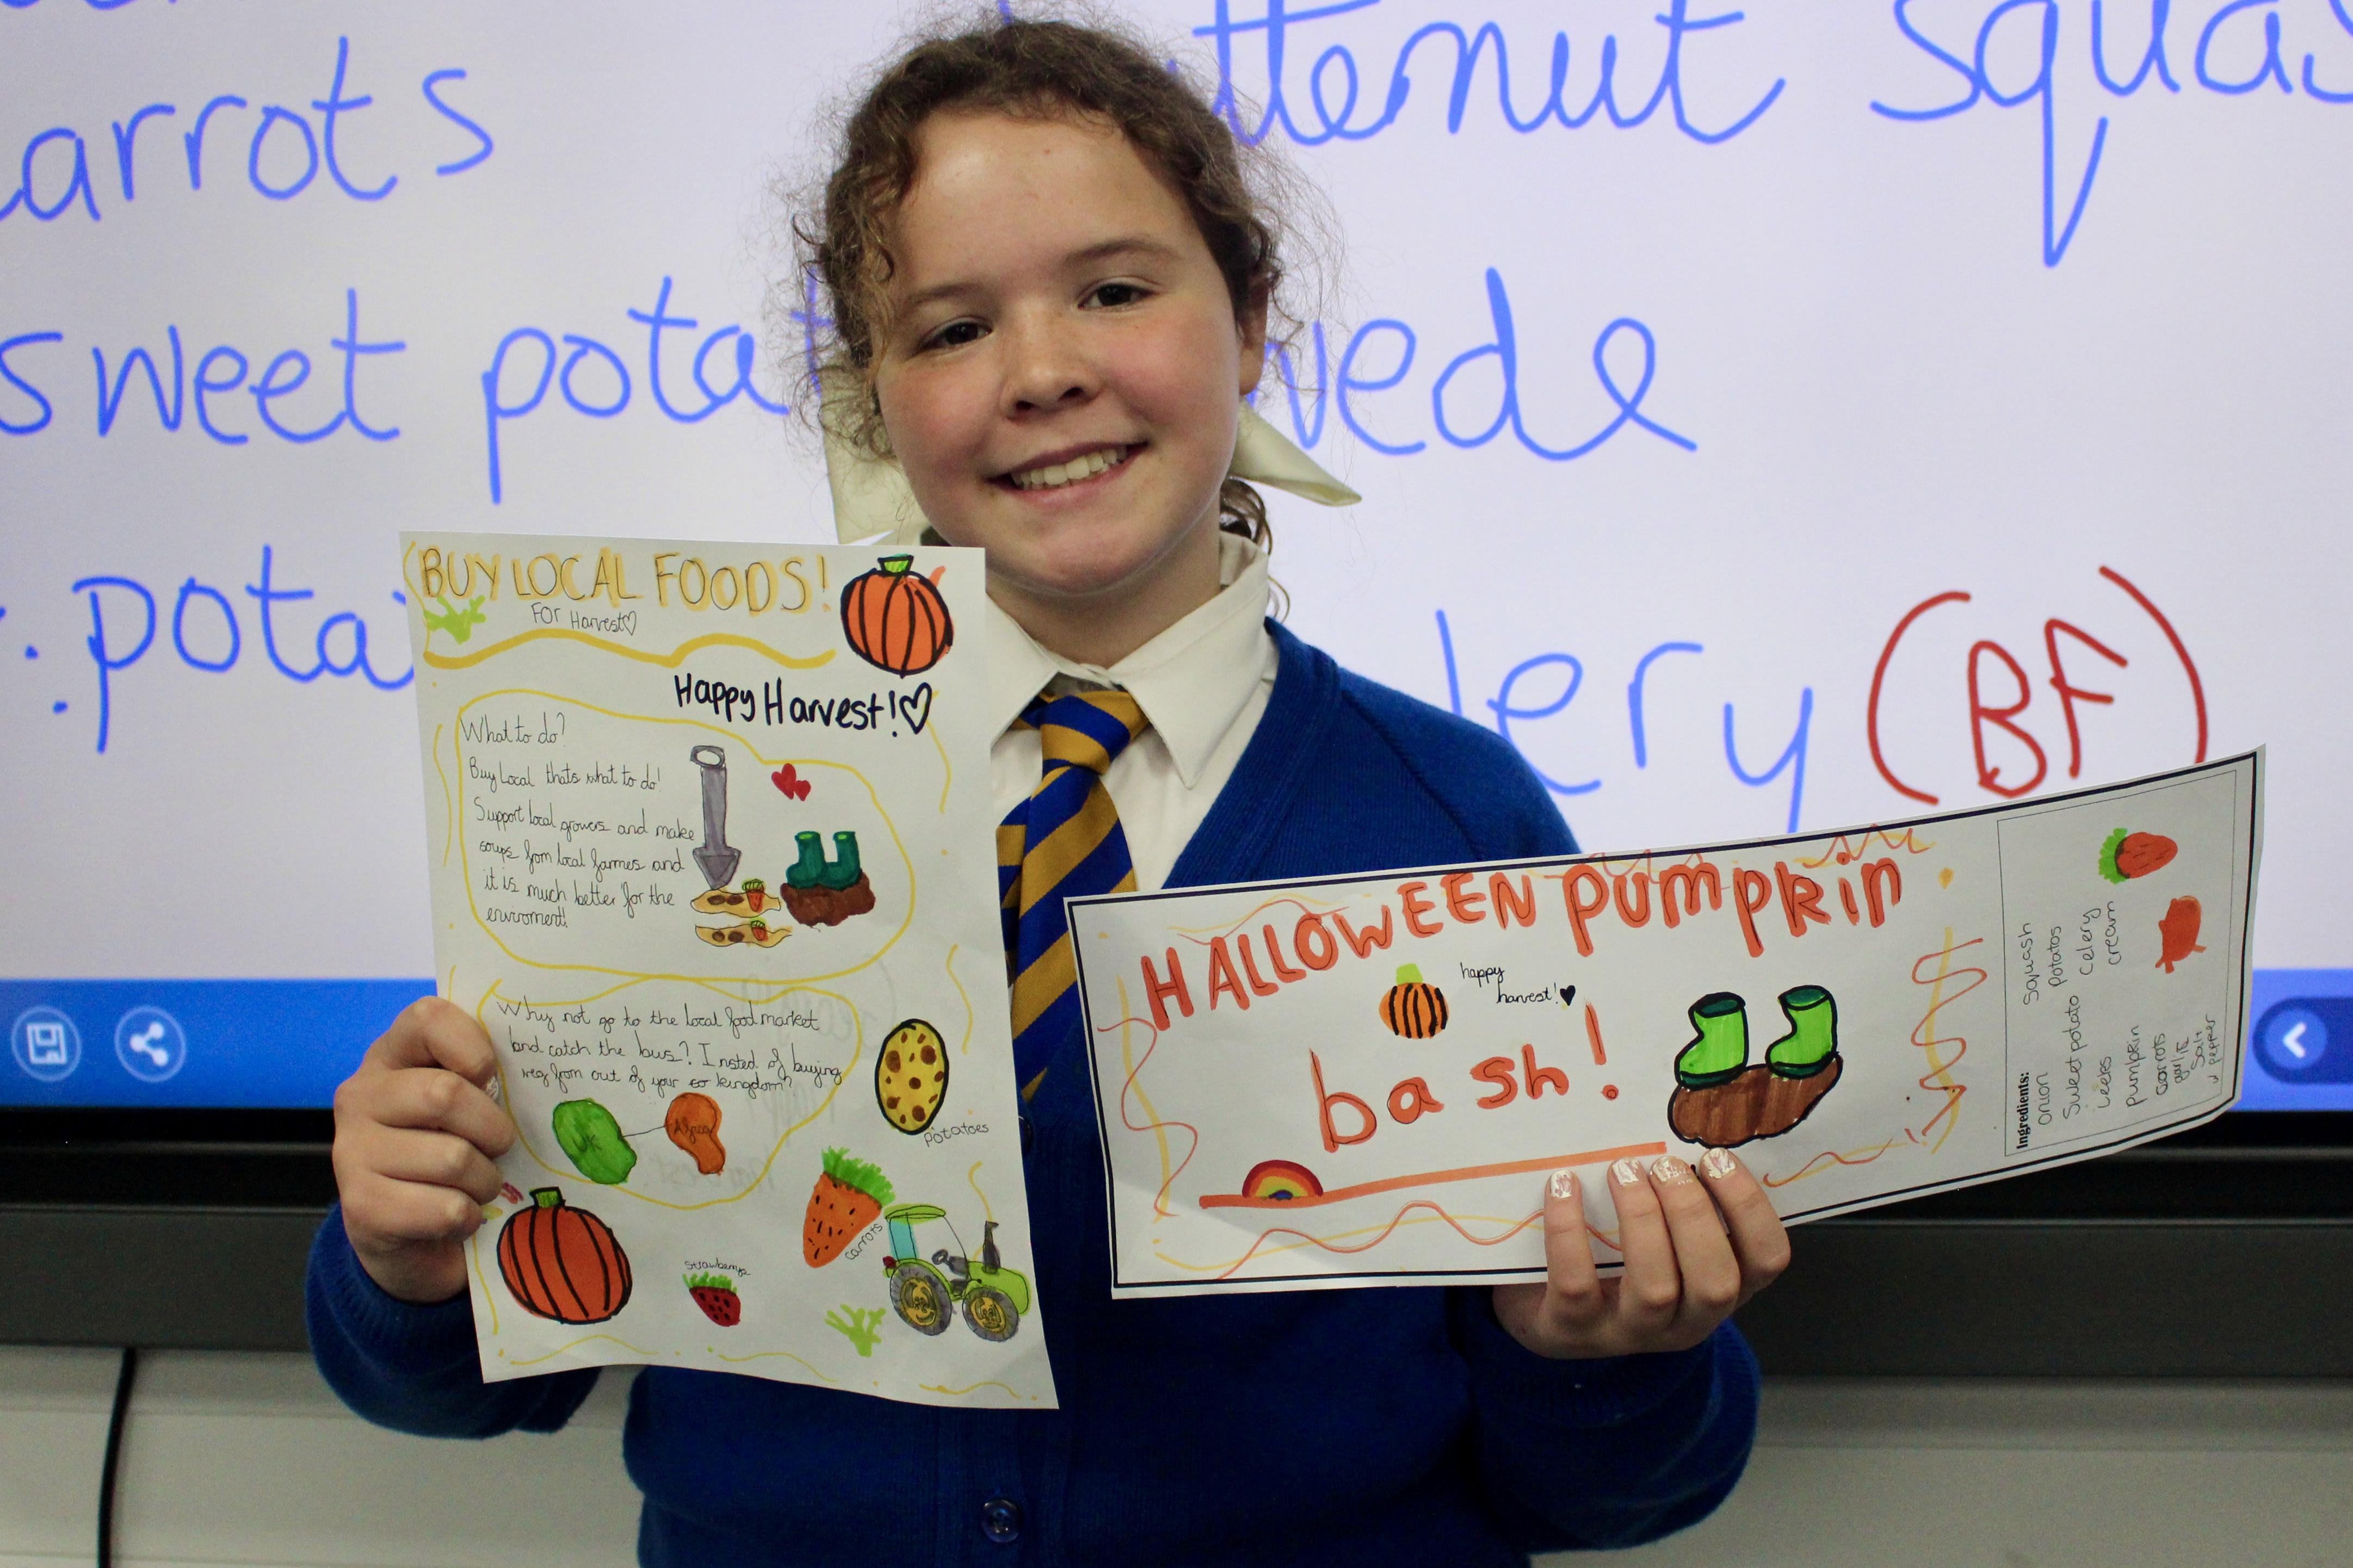 arrots
ttenut squas
sweet pota
wede
pota
lery (BF)
BUY LOCAL FOODS!
For Harvest♡
Happy Harvest!♡
What to do?
Buy Local thats what to do!
Support local growers and make
soups from local farmes and
it is much better for the
enviroment!
Why not go to the local food market
and catch the bus? Insted of buying
veg from out of your so kingdom?
UK
Africa
potatoes
carrots
strawberrys
HALLOWEEN PUMPKIN
happy
harvest!♥
bash!
Ingredients:
onion squash
Sweet potato potatos
Leeks celery
pumpkin cream
carrots
garlic
salt
& pepper